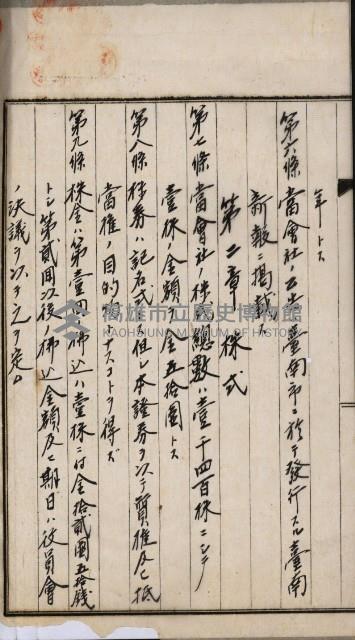 年トス
第六條 當會社ノ公告ハ臺南市ニ於テ發行スル臺南
新報ニ掲載ス
第二章 株式
第七條 當會社ノ株式總數ハ壹千四百株ニシテ
壹株ノ金額ヲ金五拾圓トス
第八條 株券ハ記名式トシ但シ本證券ヲ以テ賣權及ヒ抵
當權ノ目的トナスコトヲ得ズ
第九條 株金ハ第壹回拂込ハ壹株ニ付金拾貳圓五拾錢
トシ第貳回以後ノ拂込金額及ヒ期日ハ役員會
ノ決議ヲ以テ之ヲ定ム
高雄市立歷史博物館
KAOHSIUNG MUSEUM OF HISTORY